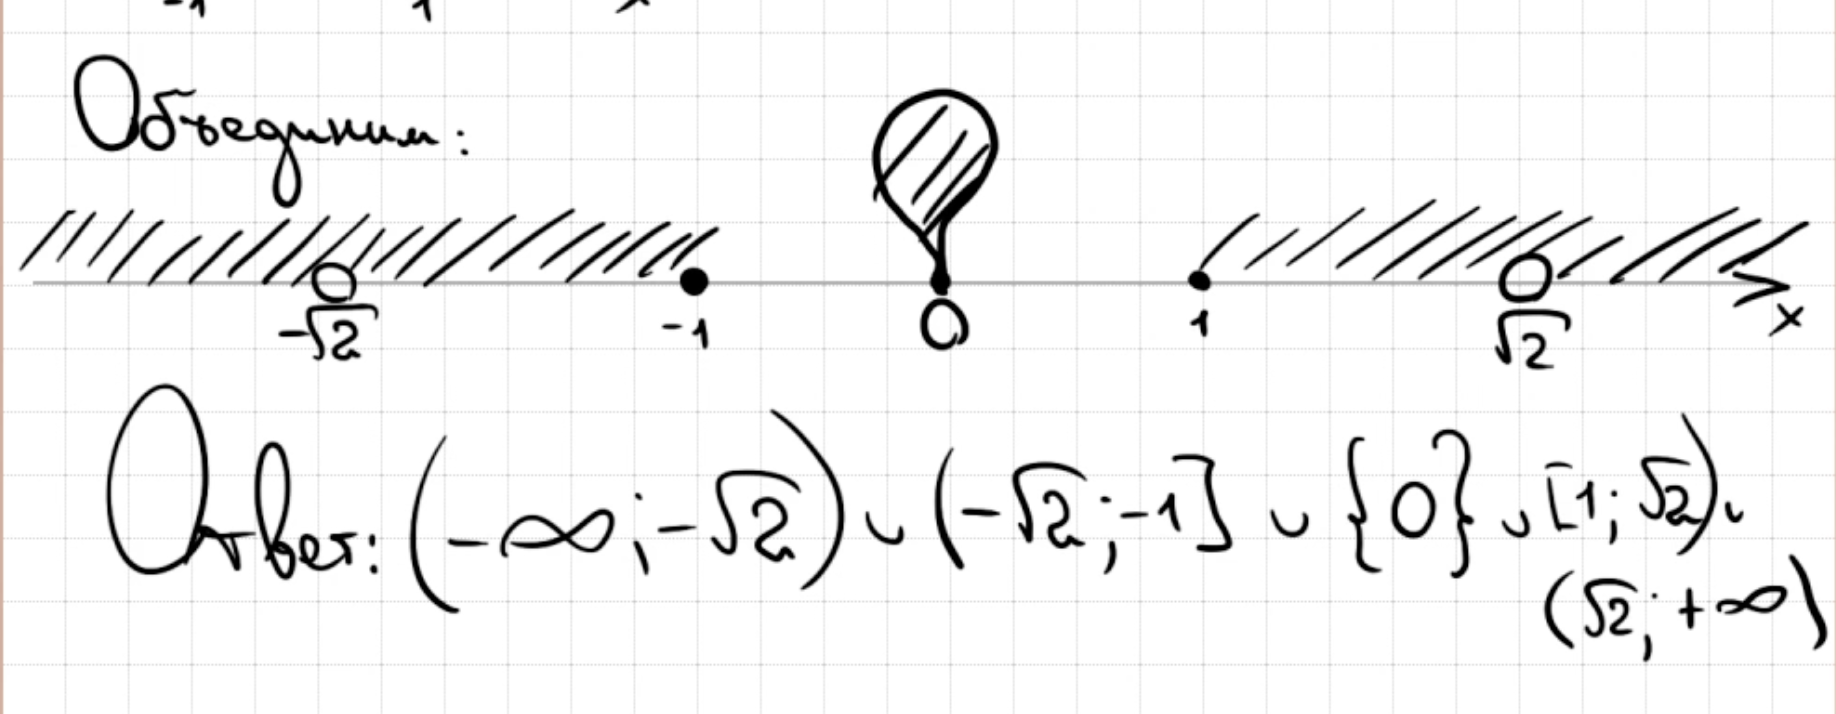 -1 1 x
Объединим:
-√2 -1 0 1 √2 x
Ответ: (-∞; -√2) ∪ (-√2; -1] ∪ {0} ∪ [1; √2) ∪
(√2; +∞)